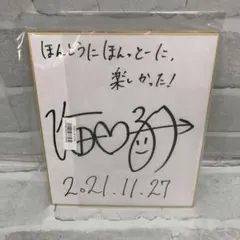 ほんとうにほんっとーに、
楽しかった!
2021.11.27